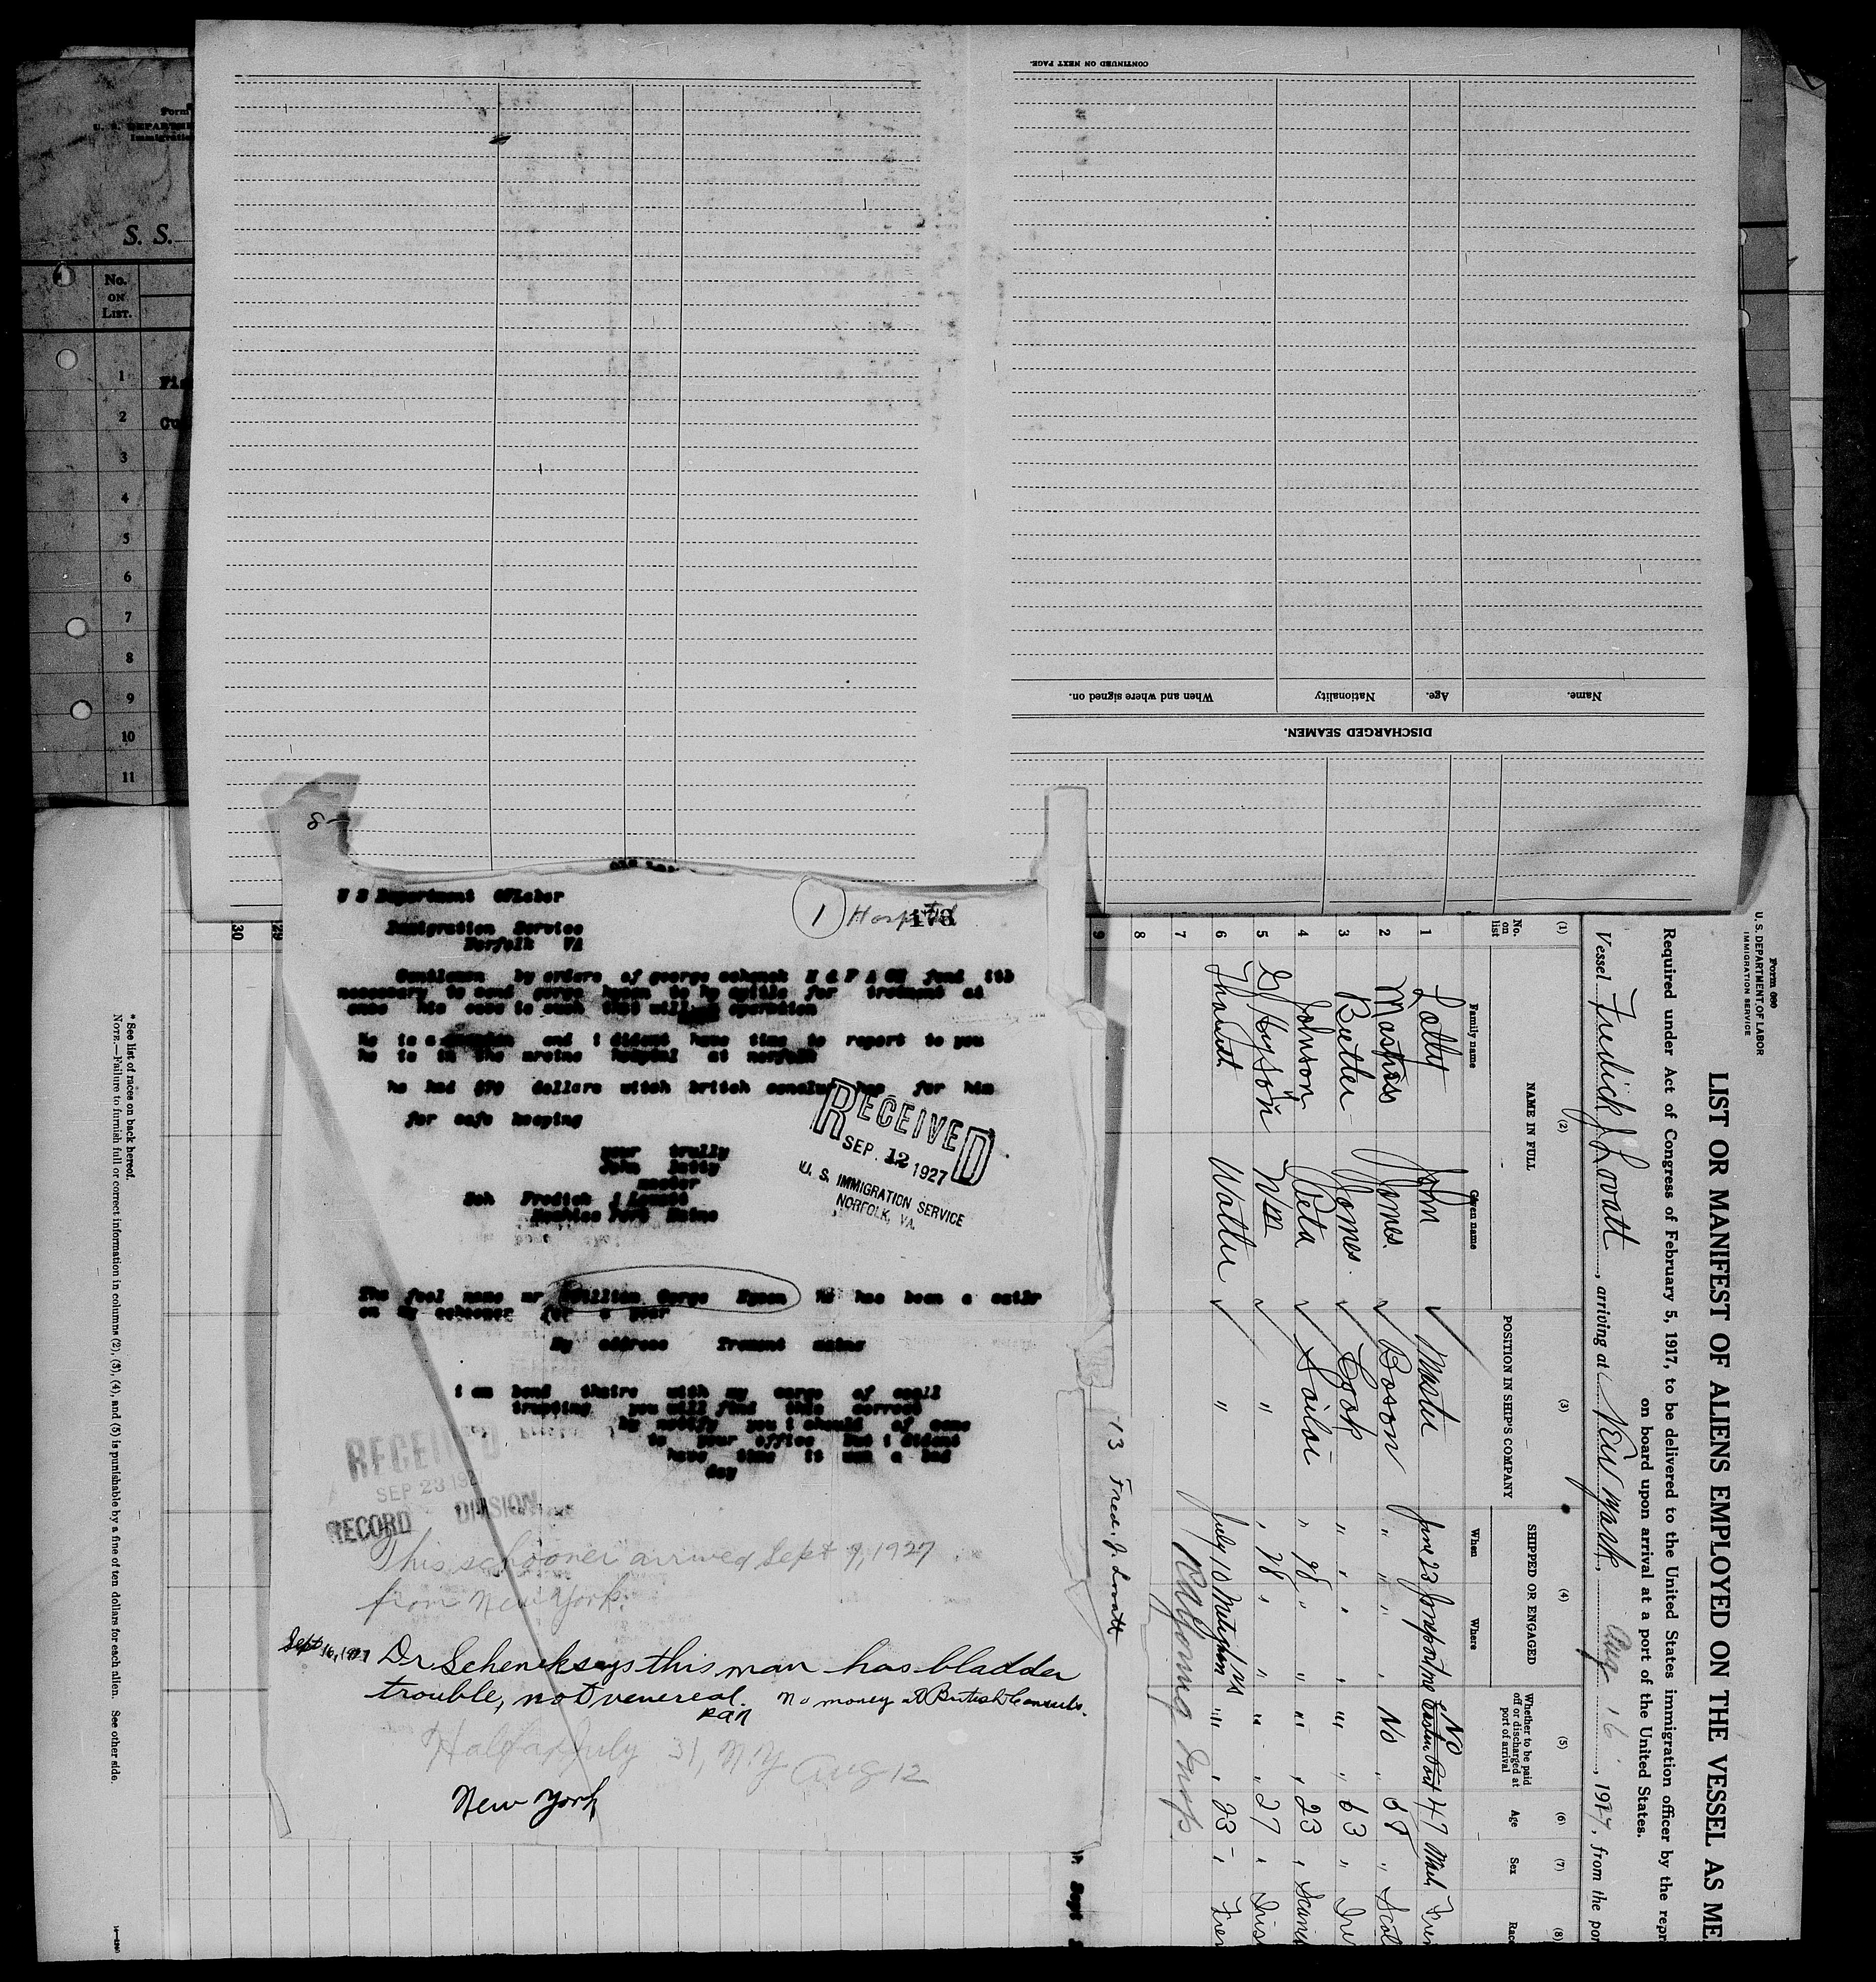 Form
U. S. DEPARTME
Immigratio
S. S.
No.
ON
LIST.
1
2
3
4
5
6
7
8
9
10
11
CONTINUED ON NEXT PAGE.
Name.
Age.
Nationality
When and where signed on.
DISCHARGED SEAMEN.
8-
U S Department Of Labor
1 Hospital
173
Imigration Service
Norfolk VA
Gentlemen by orders of george schenck M & P A SH fond itb
nessesary to send gorge hyson to ho spitle for tretment at
once his case is such that will operation
He is a and i dident have time to report to you
he is in the mreine hospital at norfolk
he had $70 dollars witch britch conclur has for him
for safe keeping
your trully
John Latty
master
Sch Fredick J Lovatt
Machias Port Maine
RECEIVED
SEP. 12 1927
U. S. IMMIGRATION SERVICE
NORFOLK, VA.
The fool name mr William Gorge Hyson he has been a sailr
on my schooner for a year
My address Tremont maine
i am bond thaire with my cargo of coall
trusting you will find this correct
by notify you i should of came
to your office but i dident
have time it was a bad
day
RECEIVED
SEP 23 1927
RECORD DIVISION
This schooner arrived Sept 9, 1927
from New York.
Sept 16, 1927 Dr. Schenck says this man has bladder
trouble, not venereal. No money at British Consuls.
RAN
Halifax July 31, N.Y. Aug 12
New York
13 Fred. J. Lovatt
Form 689
U. S. DEPARTMENT OF LABOR
IMMIGRATION SERVICE
LIST OR MANIFEST OF ALIENS EMPLOYED ON THE VESSEL AS ME
Required under Act of Congress of February 5, 1917, to be delivered to the United States immigration officer by the repr
on board upon arrival at a port of the United States.
Vessel Fredick J Lovatt, arriving at New York, Aug 16, 1927, from the por
(1) (2) (3) (4) (5) (6) (7) (8)
No. on list
NAME IN FULL
Family name
Given name
POSITION IN SHIP'S COMPANY
SHIPPED OR ENGAGED
When
Where
Whether to be paid off or discharged at port of arrival
Age
Sex
Race
1 Latty John ✓ Master June 23 Jonesport me No 47 Male Fren
2 Mastriss Jones. ✓ Boson " " No 58 " Scot
3 Butler Jones. ✓ Cook " " " 63 " Iri
4 Johnson Peta ✓ Sailor " 28 " " 23 " Scani
5 G/Hyson Wm ✓ " " 28 " " 27 " Iris
6 Walter ✓ " July 10 " 23 " Fren
7
8
9
29
30
* See list of races on back hereof.
NOTE.—Failure to furnish full or correct information in columns (2), (3), (4), and (5) is punishable by a fine of ten dollars for each alien. See other side.